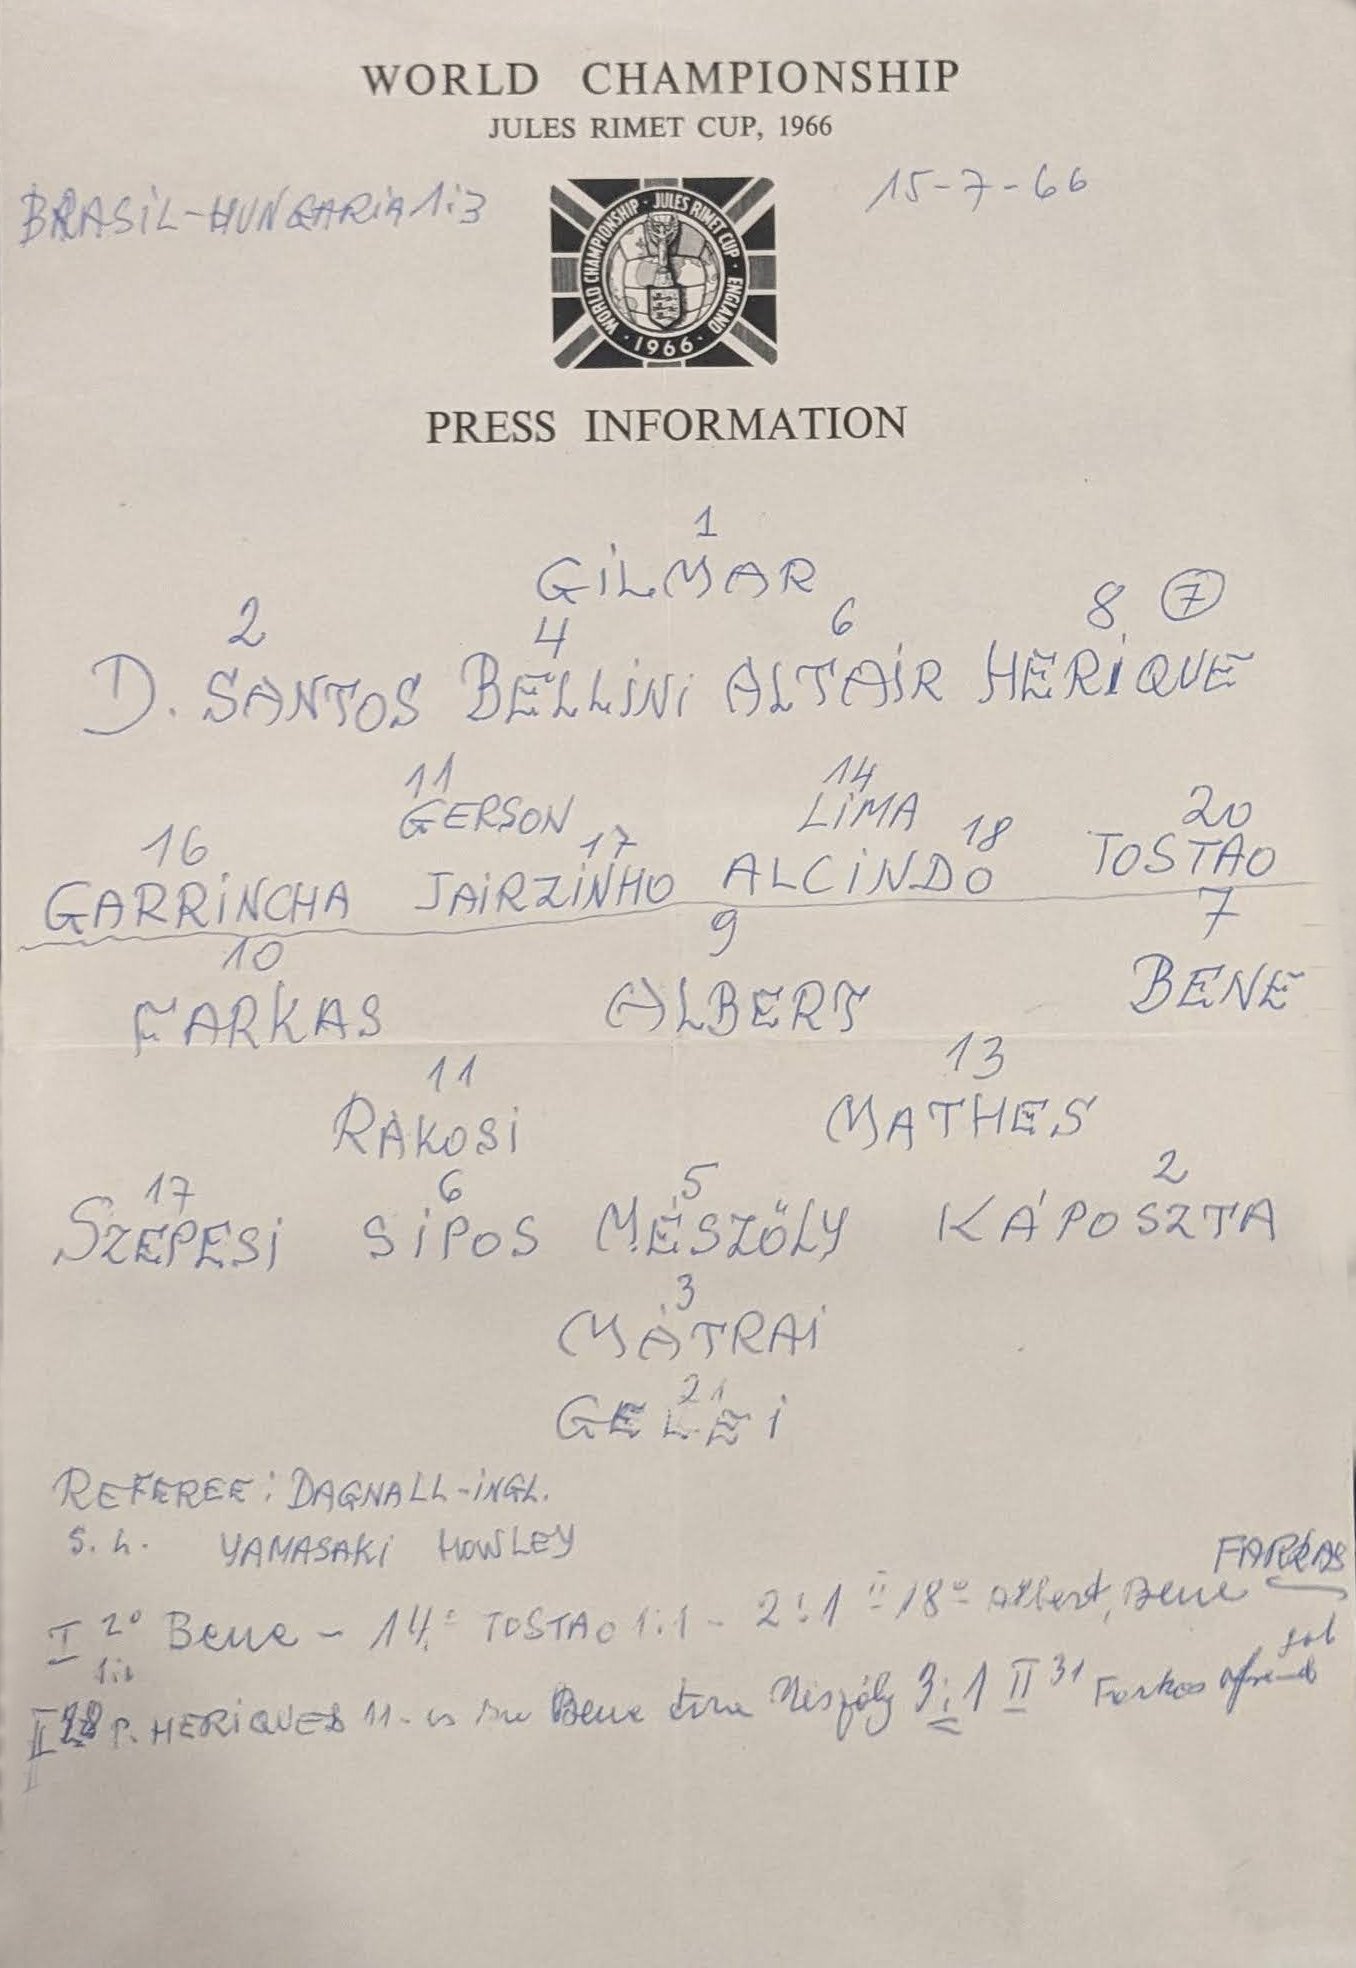 WORLD CHAMPIONSHIP
JULES RIMET CUP, 1966
BRASIL-HUNGARIA 1:3
15-7-66
WORLD CHAMPIONSHIP · JULES RIMET CUP · ENGLAND
· 1966 ·
PRESS INFORMATION
1
GILMAR
2 4 6 8 7
D. SANTOS BELLINI ALTAIR HERIQUE
11 14
GERSON LIMA
16 17 18 20
GARRINCHA JAIRZINHO ALCINDO TOSTAO
10 9 7
FARKAS ALBERT BENE
11 13
RÁKOSI MATHES
17 6 5 2
SZEPESI SIPOS MÉSZÖLY KÁPOSZTA
3
MÁTRAI
21
GELEI
REFEREE: DAGNALL-INGL.
S. h. YAMASAKI HOWLEY
FARKAS
I 2º Bene - 14.º TOSTAO 1:1 - 2:1 II 18º Albert, Bene
gol
II 28 P. HERIQUES 11- Bene Mészöly 3:1 II 31 Farkas